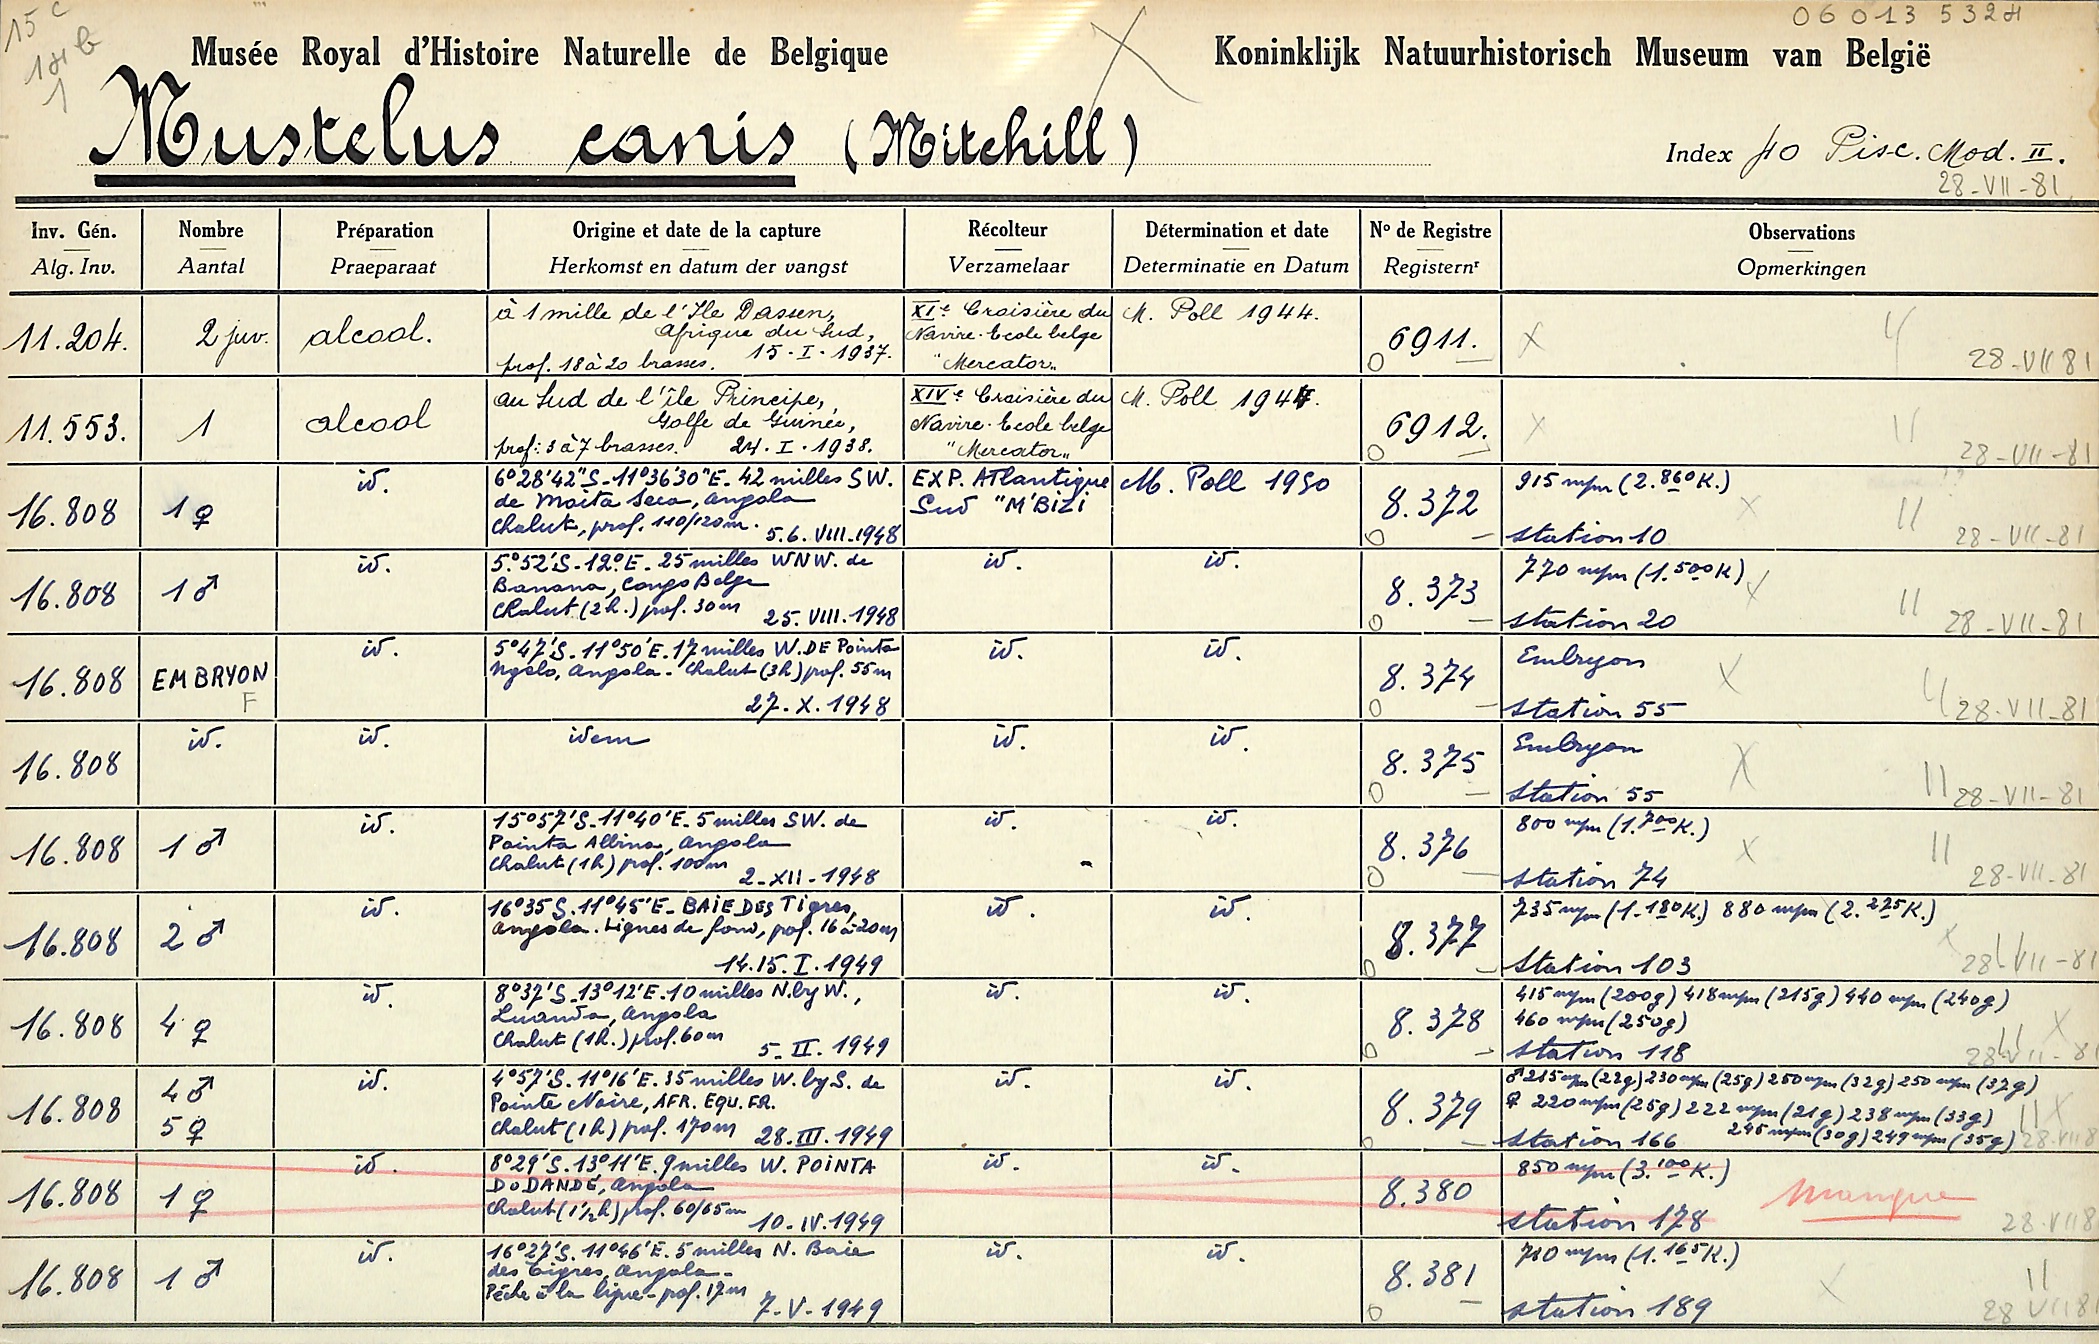 15 c
14 b
1
06 013 5324
Musée Royal d'Histoire Naturelle de Belgique
Koninklijk Natuurhistorisch Museum van België
Mustelus canis (Mitchill)
Index 40 Pisc. Mod. II.
28-VII-81
Inv. Gén. Nombre Préparation Origine et date de la capture Récolteur Détermination et date Nº de Registre Observations
Alg. Inv. Aantal Praeparaat Herkomst en datum der vangst Verzamelaar Determinatie en Datum Registernr Opmerkingen
11.204. 2 juv. alcool.
à 1 mille de l'Ile Dassen,
Afrique du Sud,
prof. 18 à 20 brasses. 15-I-1937.
XIe Croisière du
Navire-Ecole belge
"Mercator„
M. Poll 1944.
6911.
28-VII 81
11.553. 1 alcool
au Sud de l'île Principe,
Golfe de Guinée,
prof: 3 à 7 brasses. 24-I-1938.
XIVe Croisière du
Navire-Ecole belge
"Mercator„
M. Poll 1944.
6912.
28-VII-81
16.808 1 ♀ id.
6°28'42"S-11°36'30"E. 42 milles SW.
de Moita Seca, Angola
Chalut, prof. 110/120m. 5.6.VIII-1948
EXP. ATlantique
Sud "M'BiZi
M. Poll 1950
8.372
915 mm (2.860 K.)
station 10
28-VII-81
16.808 1 ♂ id.
5°52'S-12°E. 25 milles WNW. de
Banana, Congo Belge
Chalut (2h.) prof. 30m 25.VIII.1948
id. id.
8.373
770 mm (1.500 K)
station 20
28-VII-81
16.808 EMBRYON F id.
5°47'S-11°50'E. 17 milles W.DE Pointa
Ngelo, Angola - Chalut (3h) prof. 55m
27.X.1948
id. id.
8.374
Embryon
station 55
28-VII-81
16.808 id. id. idem id. id.
8.375
Embryon
station 55
28-VII-81
16.808 1 ♂ id.
15°57'S-11°40'E. 5 milles SW. de
Pointa Albina, Angola
Chalut (1h) prof. 100m 2-XII-1948
id. id.
8.376
800 mm (1.700 K.)
station 74
28-VII-81
16.808 2 ♂ id.
16°35'S.11°45'E- BAIE DES Tigres,
Angola. Lignes de fond, prof. 16 à 20m
14.15.I.1949
id. id.
8.377
735 mm (1.180 K.) 880 mm (2.275 K.)
station 103
28-VII-81
16.808 4 ♀ id.
8°37'S-13°12'E. 10 milles N.by W.,
Luanda, Angola
Chalut (1h.) prof. 60m 5-II.1949
id. id.
8.378
415 mm (200g) 418 mm (215g) 440 mm (240g)
460 mm (250g)
station 118
28-VII-81
16.808 4 ♂ 5 ♀ id.
4°57'S.11°16'E. 35 milles W. by S. de
Pointe Noire, AFR. EQU. FR.
Chalut (1h) prof. 170m 28.III.1949
id. id.
8.379
♂ 215 mm (22g) 230 mm (25g) 250 mm (32g) 250 mm (37g)
♀ 220 mm (25g) 222 mm (21g) 238 mm (33g)
245 mm (30g) 249 mm (35g)
station 166
28-VII 8
16.808 1 ♀ id.
8°29'S.13°11'E. 9 milles W. POINTA
DO DANDE, Angola
Chalut (1½h) prof. 60/65m 10-IV.1949
id. id.
8.380
850 mm (3.100 K.)
station 178
manque
28-VII 8
16.808 1 ♂ id.
16°27'S.11°46'E. 5 milles N. Baie
des Tigres, Angola-
Pêche à la ligne - prof. 17m
7-V-1949
id. id.
8.381
710 mm (1.165 K.)
station 189
28 VII 81